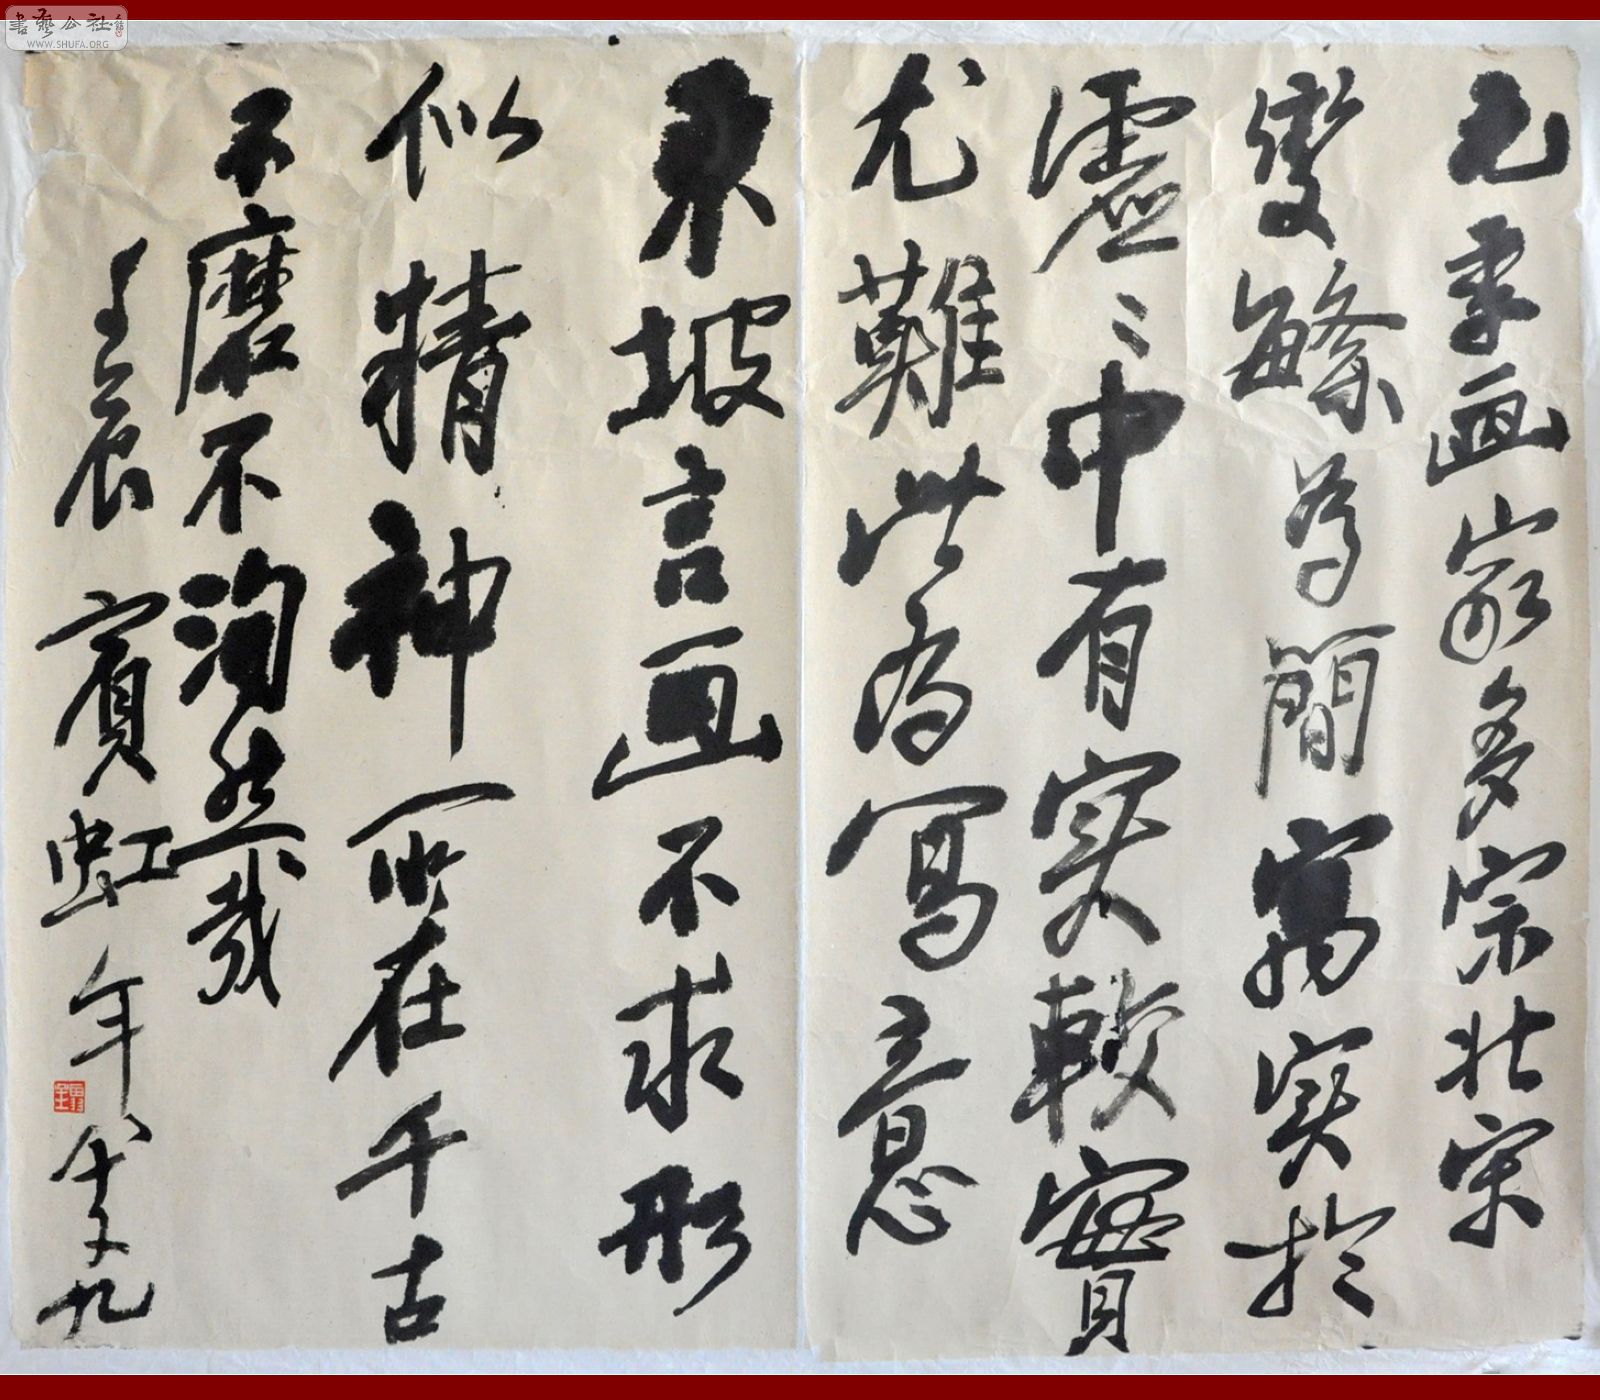 元季画家多宗北宋
变繁为簡寓实於
虛虛中有实較實
尤難此为寫意
東坡言画不求形
似精神所在千古
不磨不洵然哉
壬辰 賓虹年八十又九
書藝公社
WWW.SHUFA.ORG